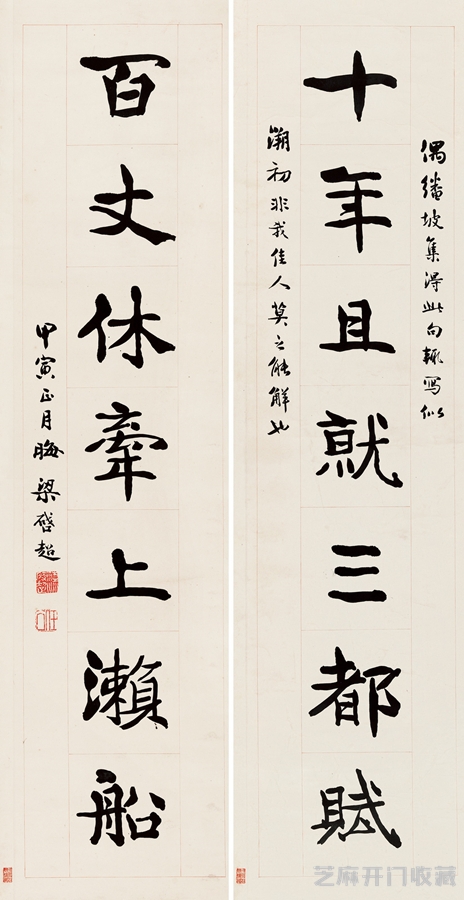 偶繙坡集得此句輒写似
十年且就三都賦
溯初非我佳人莫之能解也
百丈休牽上瀨船
甲寅正月晦梁啓超
芝麻开门收藏